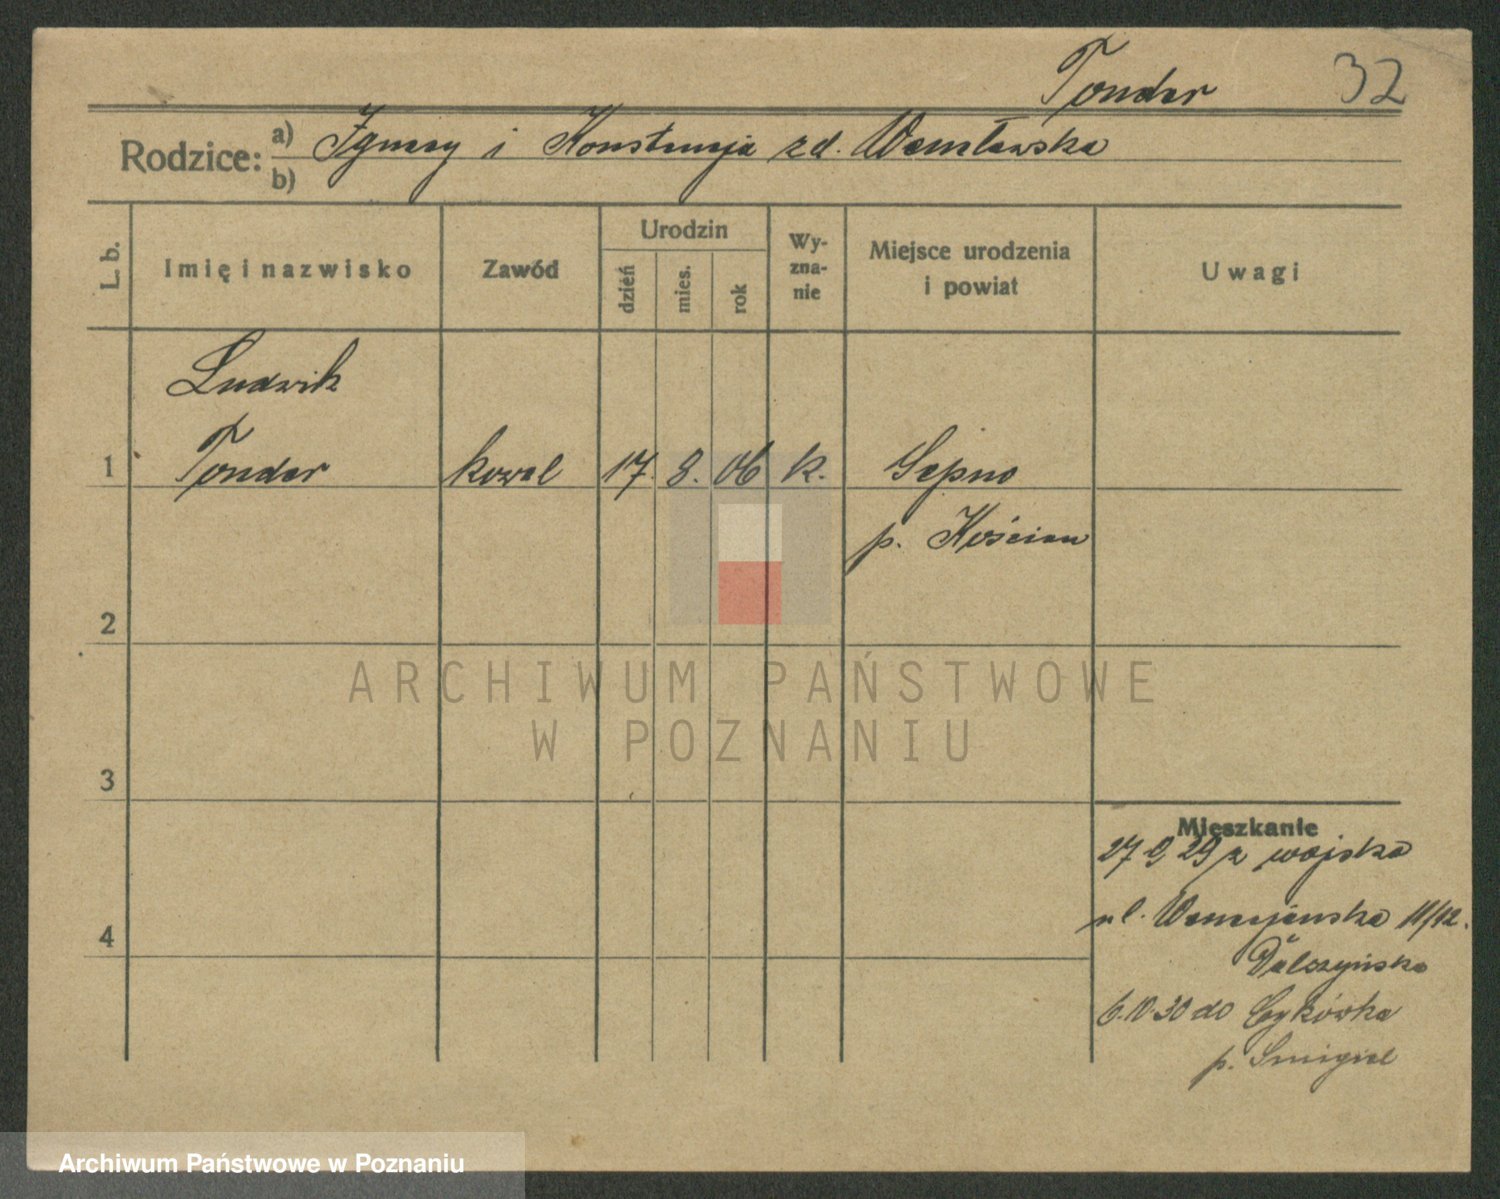 Tonder 32
Rodzice: a) Ignacy i Konstancja zd.
b)
L. b. Imię i nazwisko Zawód Urodzin Wy-zna-nie Miejsce urodzenia i powiat Uwagi
dzień mies. rok
Ludwik
1 Tonder kowal 17. 8. 06 k. Sepno
p. Kościan
2
ARCHIWUM PAŃSTWOWE
W POZNANIU
3
Mieszkanie
27 9 29 z wojska
ul. 11/12.
4
6.10.30 do
p. Smigiel
Archiwum Państwowe w Poznaniu